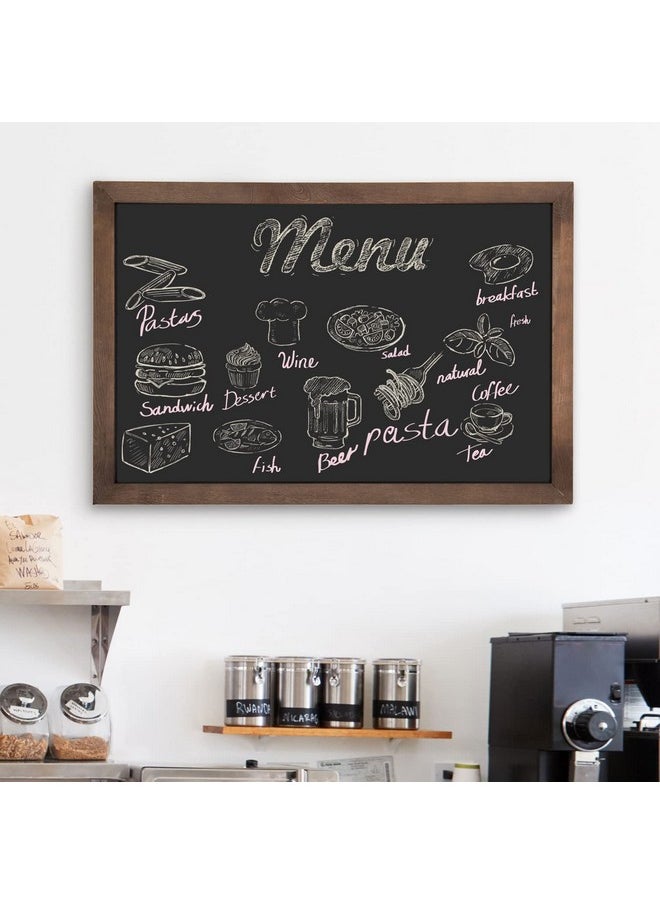 Menu
breakfast
Pastas
fresh
Wine
salad
natural
Sandwich
Dessert
Coffee
Beer
pasta
fish
Tea
RWANDA
NICARAG
MALAWI